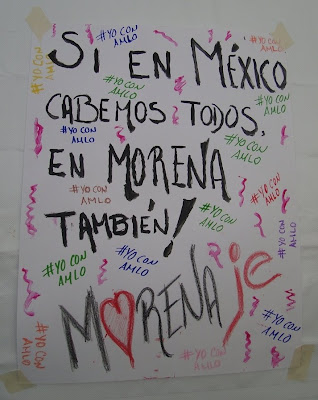 #YO CON
AMLO
#YO CON
AMLO
#YO CON
AMLO
SI EN MÉXICO
#YO CON
AMLO
#YO CON
AMLO
CABEMOS TODOS,
#YO CON
AMLO
#YO CON
AMLO
EN MORENA
#YO CON
AMLO
#YO CON
AMLO
TAMBIÉN!
#YO CON
AMLO
#YO CON
AMLO
#YO CON
AMLO
#YO CON
AMLO
MORENAje
#YO CON
AMLO
#YO CON
AMLO
#YO CON
AMLO